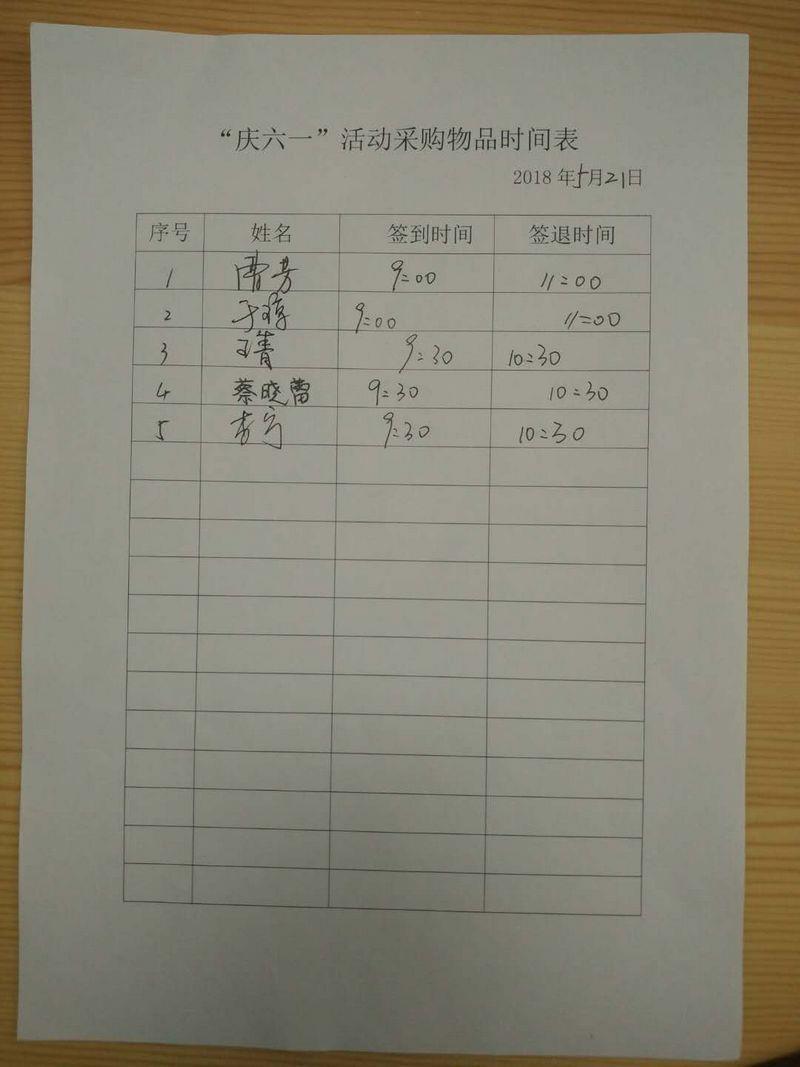 “庆六一”活动采购物品时间表
2018年5月21日
序号 姓名 签到时间 签退时间
1 曹芳 9:00 11:00
2 于 9:00 11:00
3 王菁 9:30 10:30
4 蔡晓蕾 9:30 10:30
5 9:30 10:30